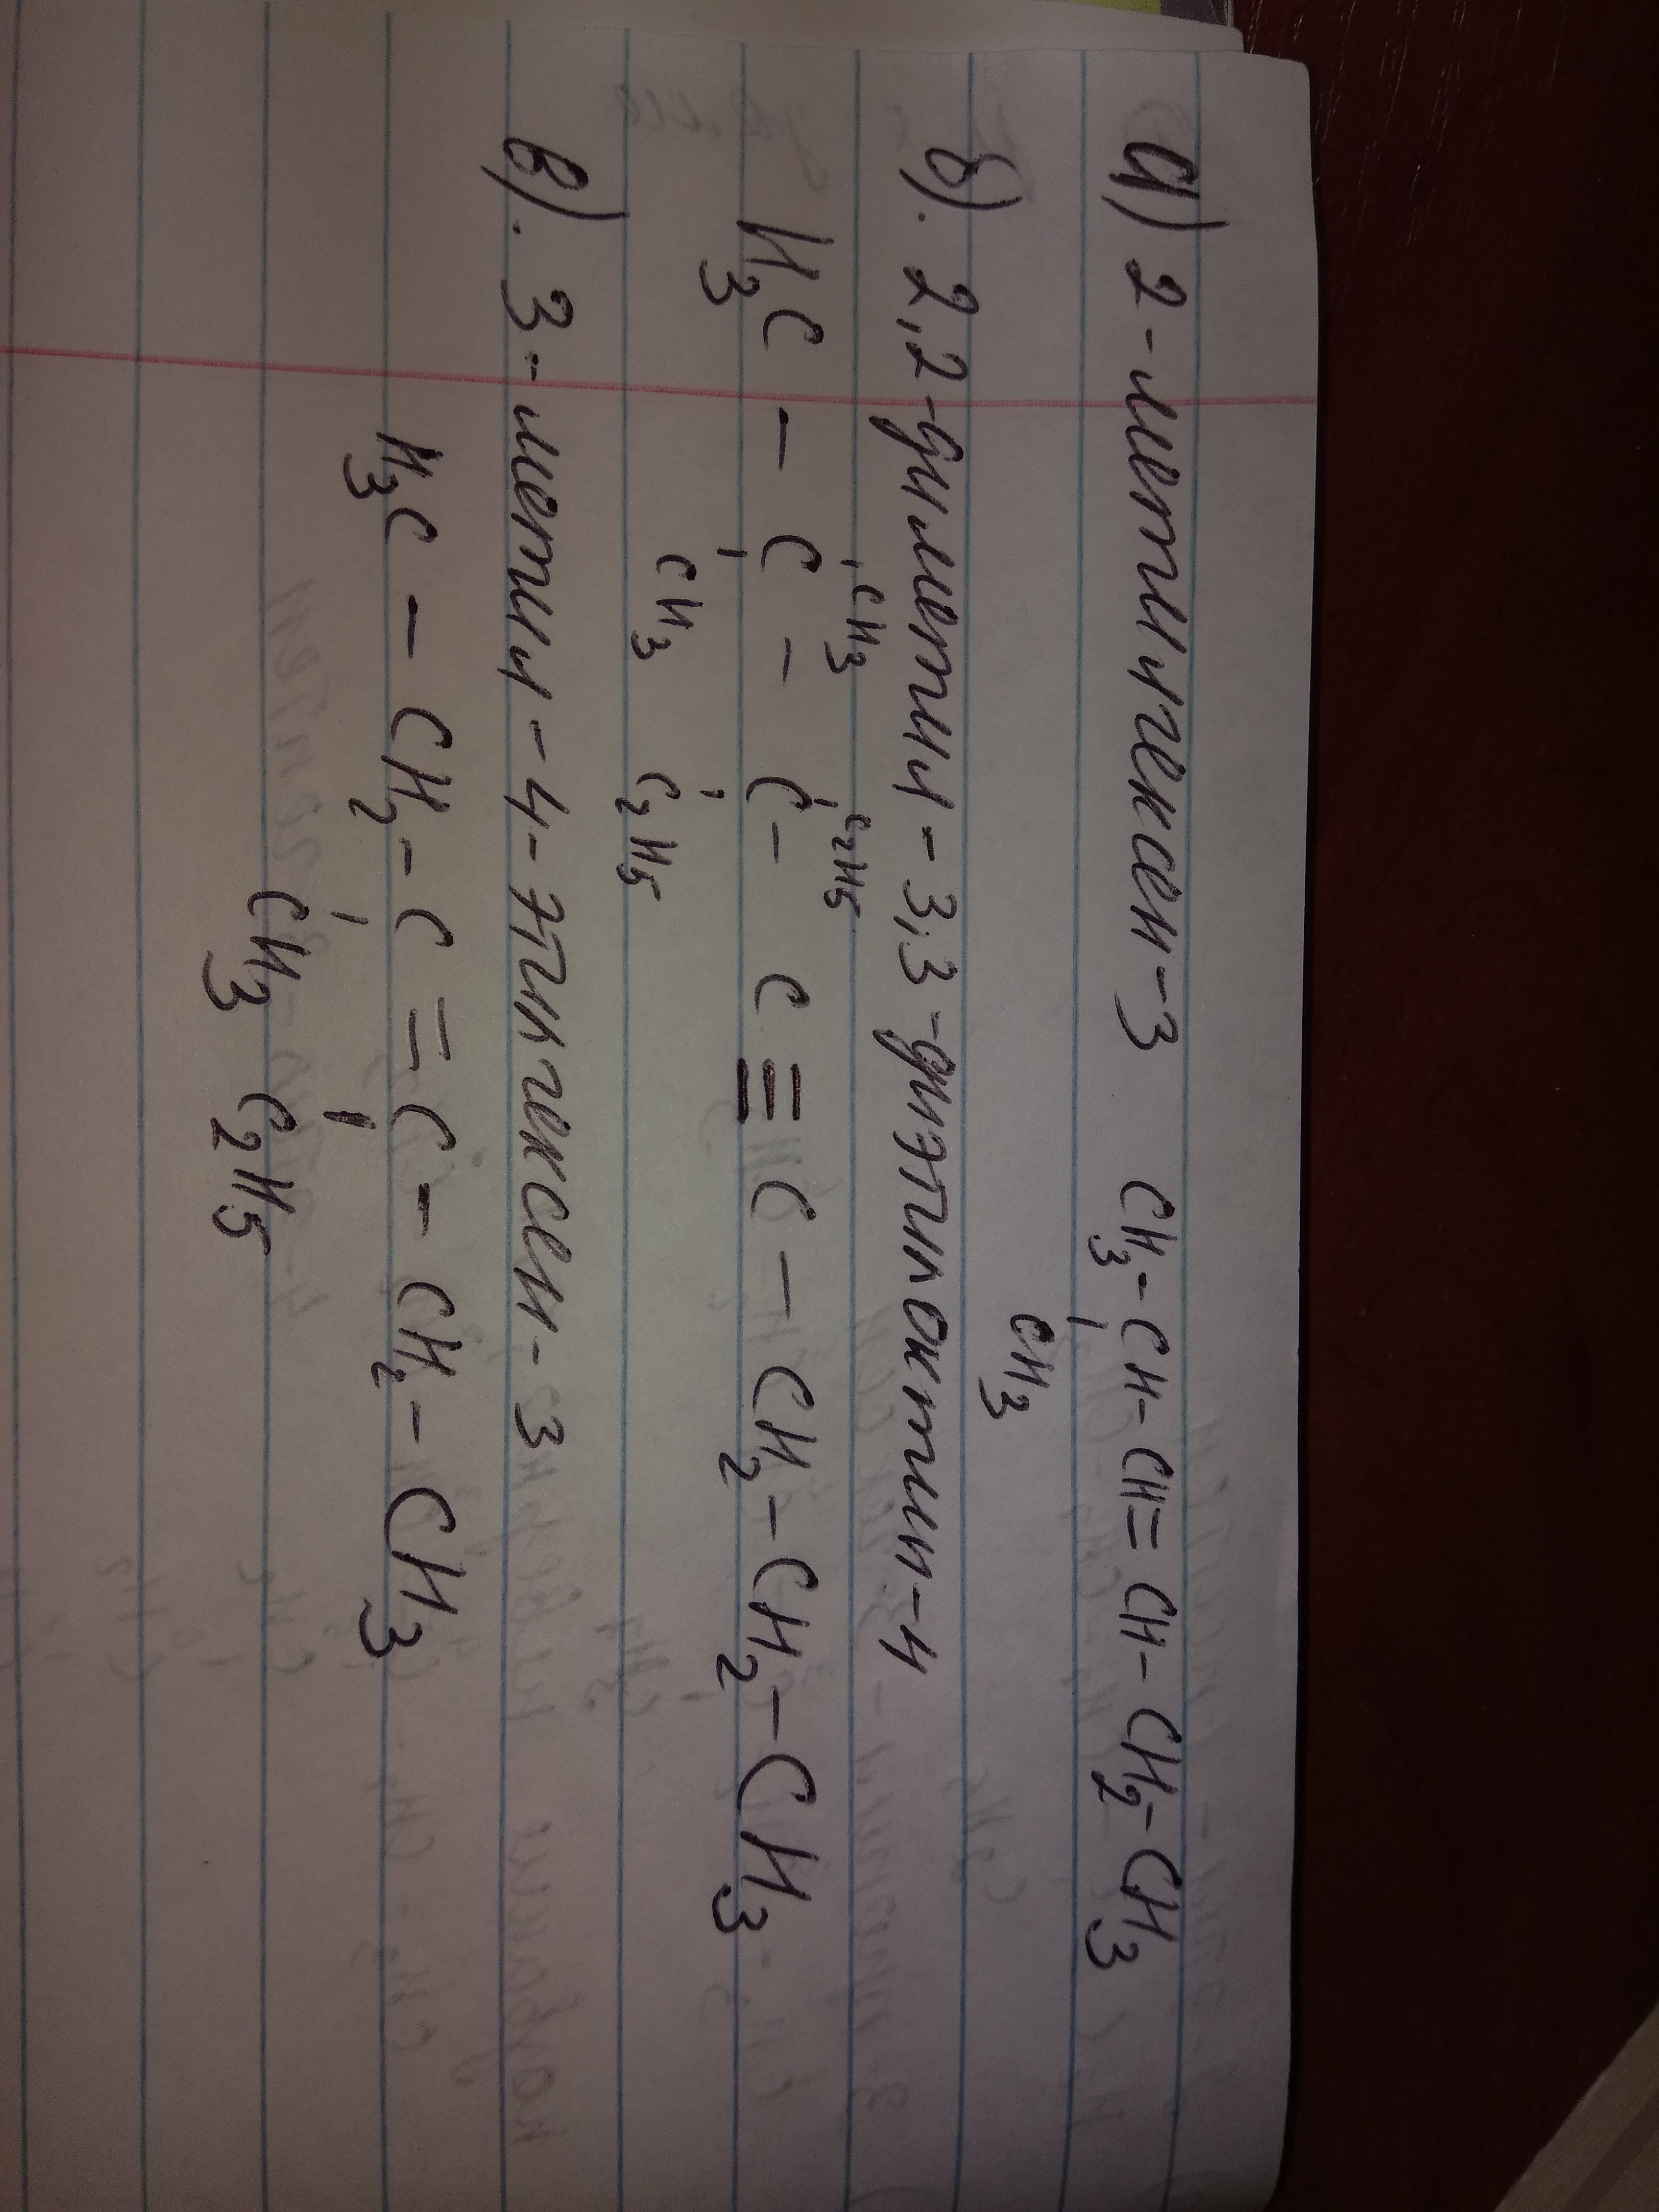 а) 2-метилгексен-3 CH3-CH-CH=CH-CH2-CH3
CH3
б). 2,2-диметил-3,3-диэтилоктин-4
CH3 C2H5
H3C - C - C - C ≡ C - CH2-CH2-CH3
CH3 C2H5
в). 3-метил-4-этилгексен-3
H3C - CH2-C = C - CH2-CH3
CH3 C2H5